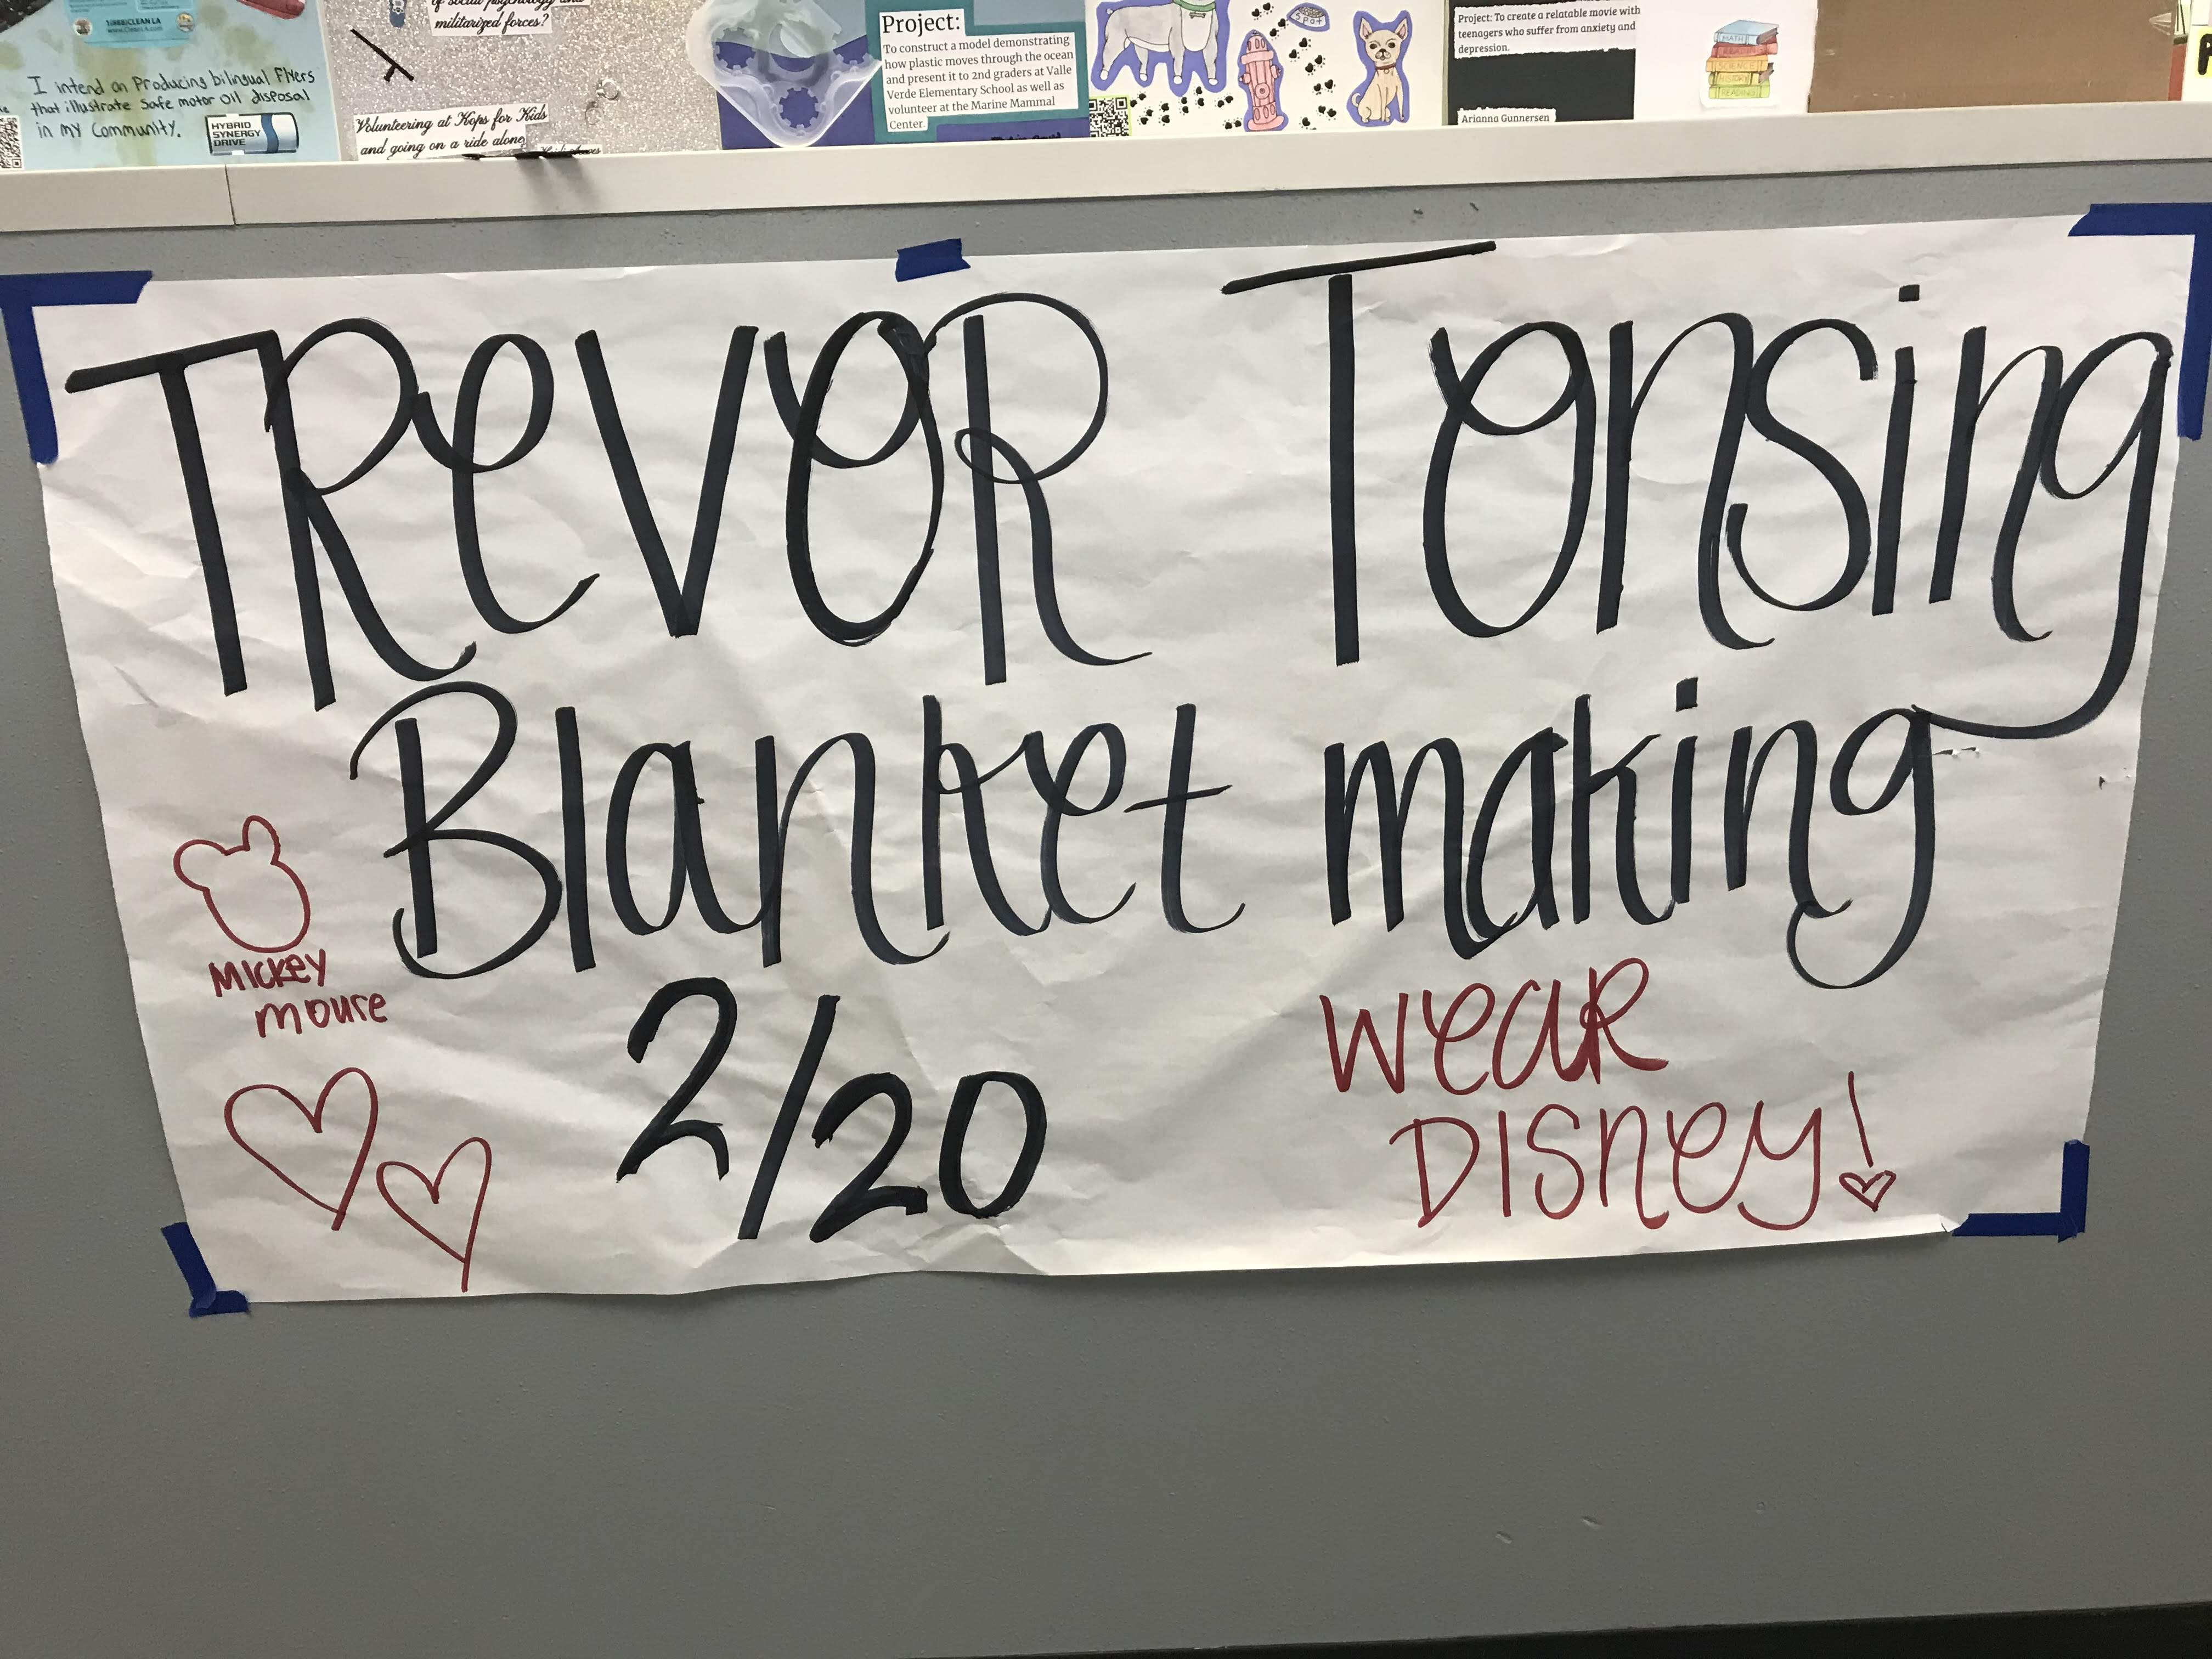 1(888)CLEAN LA
www.CleanLA.com
I intend on Producing bilingual Flyers
that illustrate safe motor oil disposal
in my Community.
HYBRID
SYNERGY
DRIVE
of social psychology and
militarized forces?
Volunteering at Kops for Kids
and going on a ride alone
Project:
To construct a model demonstrating
how plastic moves through the ocean
and present it to 2nd graders at Valle
Verde Elementary School as well as
volunteer at the Marine Mammal
Center.
SPOT
Project: To create a relatable movie with
teenagers who suffer from anxiety and
depression.
Arianna Gunnersen
MATH
READING
SCIENCE
HISTORY
READING
TReVOR Tonsing
Blanket making
2/20
Mickey
mouse
weaR
DISney!